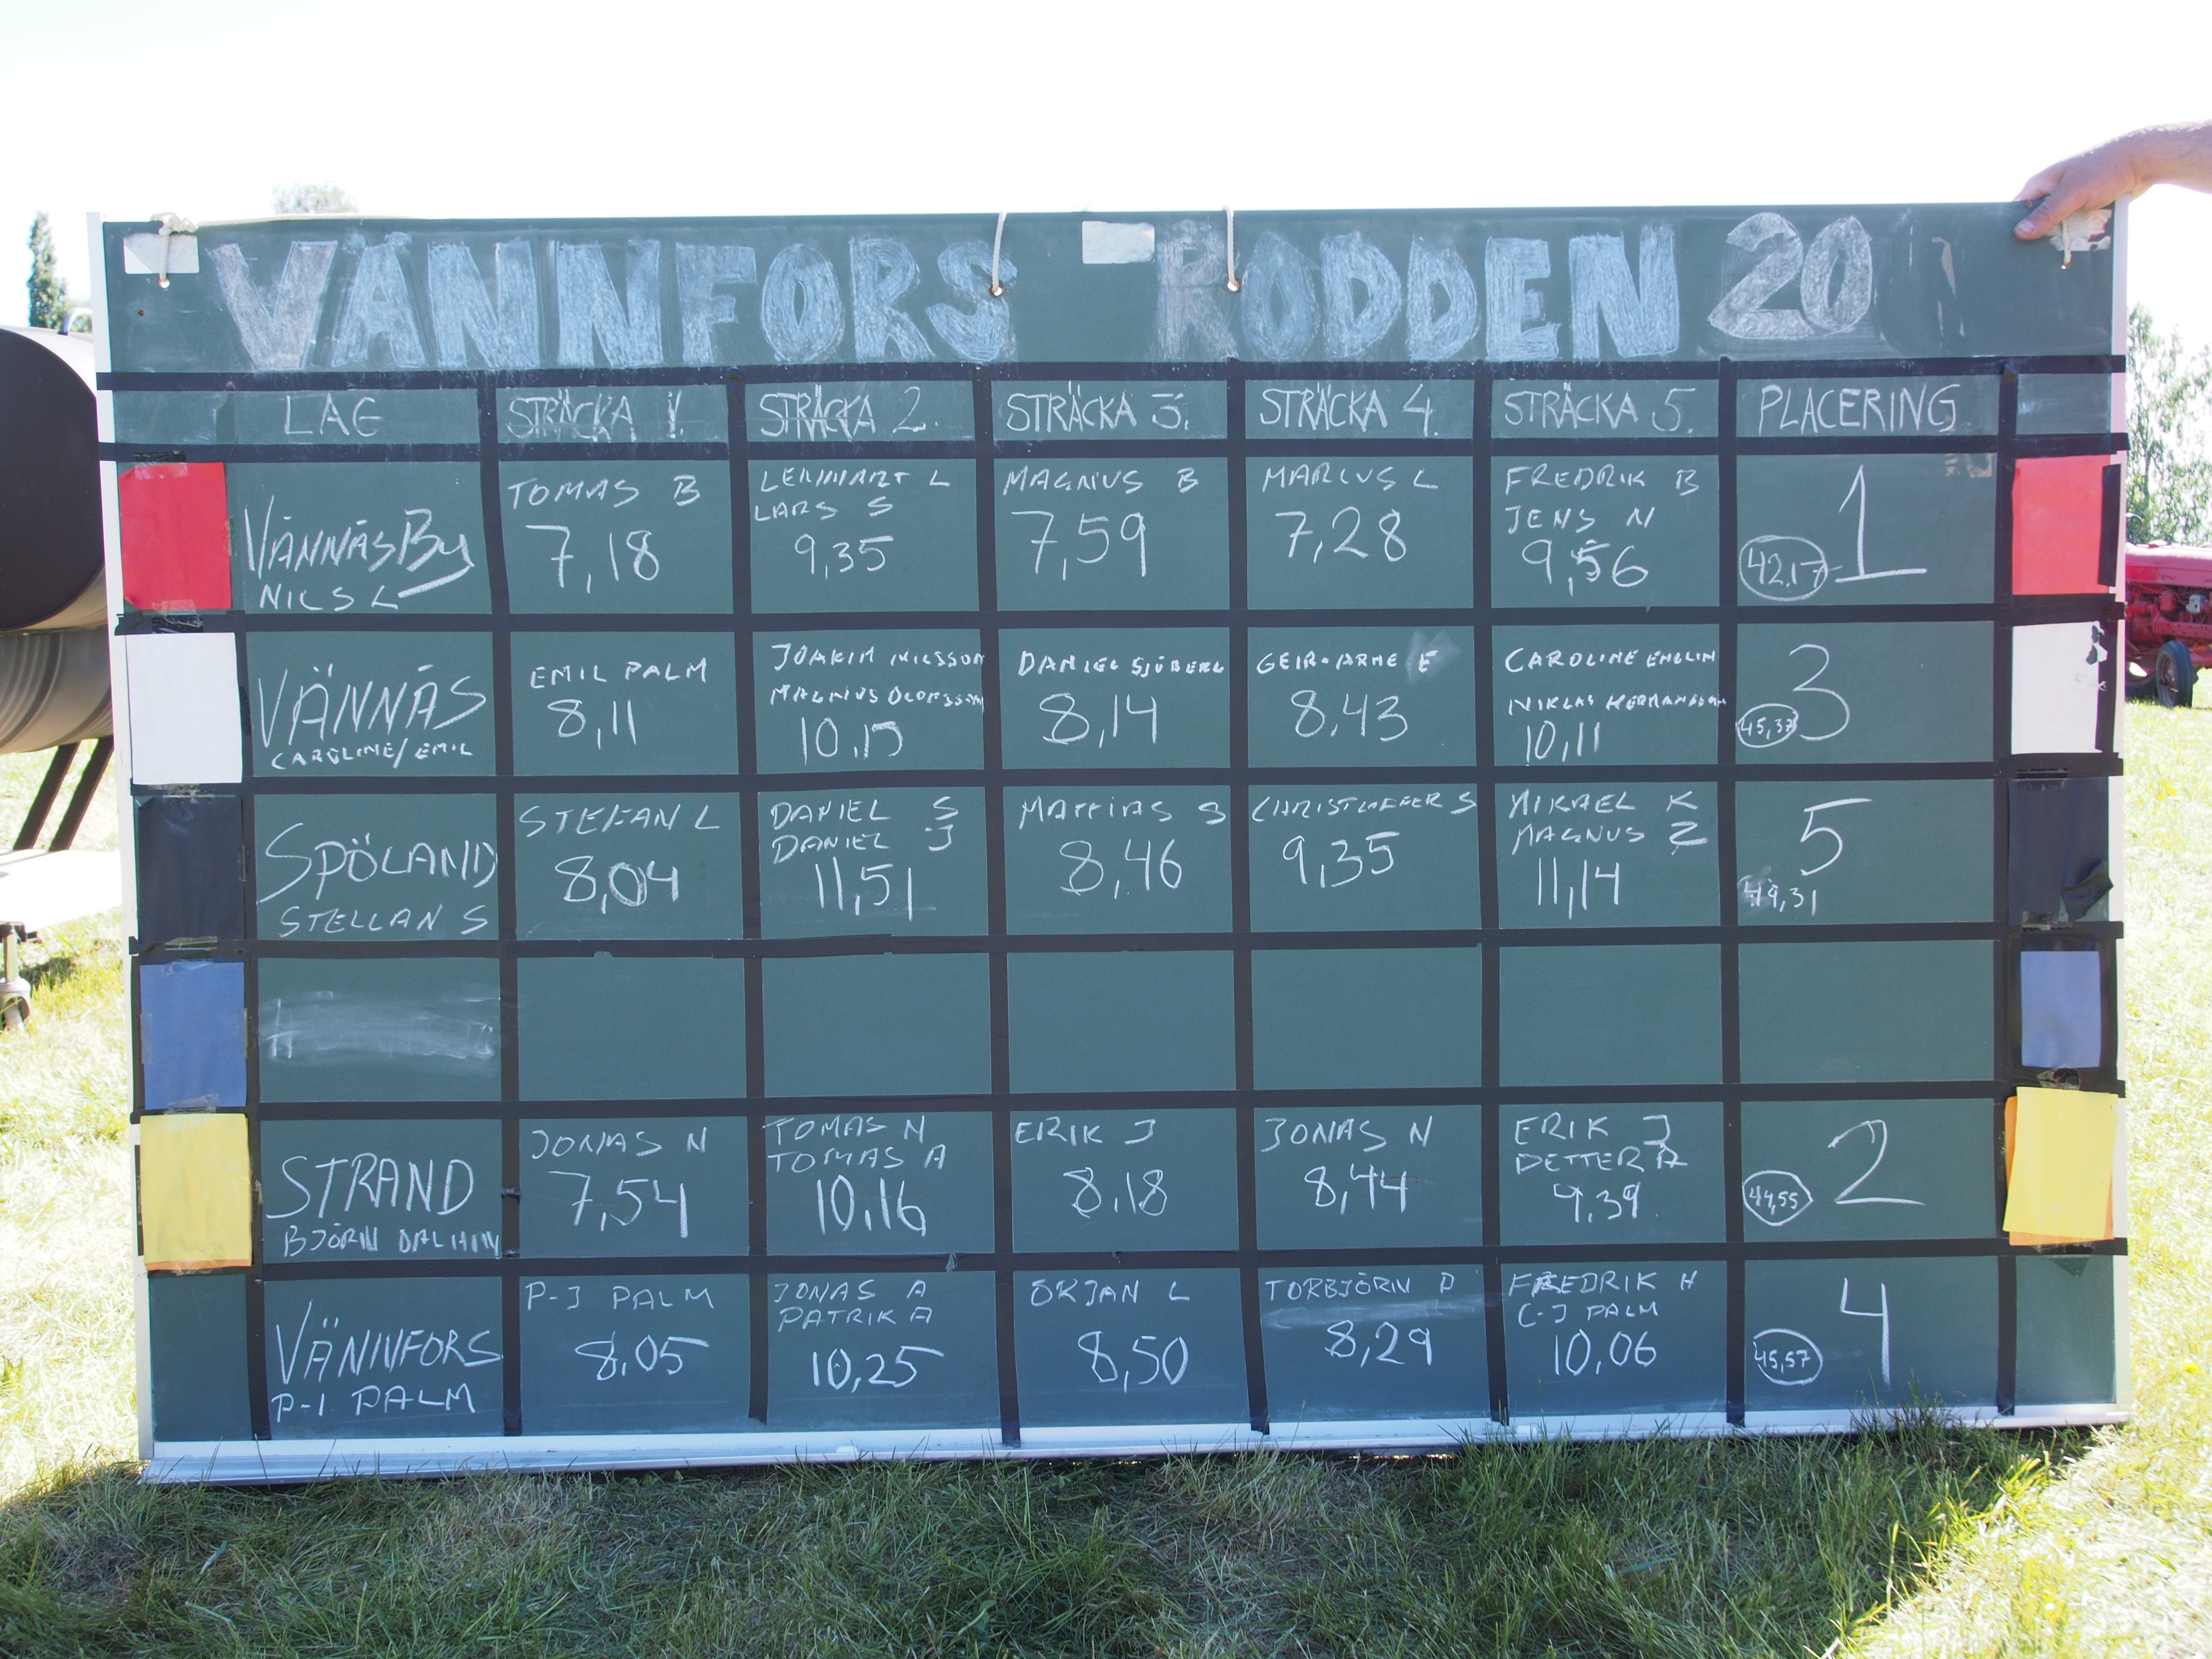 VÄNNFORS RODDEN 20
LAG
STRÄCKA 1.
STRÄCKA 2.
STRÄCKA 3.
STRÄCKA 4.
STRÄCKA 5.
PLACERING
VÄNNÄSBY
NILS L
TOMAS B
7,18
LENNART L
LARS S
9,35
MAGNUS B
7,59
MARCUS L
7,28
FREDRIK B
JENS N
9,56
1
42,17
VÄNNÄS
CAROLINE/EMIL
EMIL PALM
8,11
JOAKIM NILSSON
MAGNUS OLOFSSON
10,15
DANIEL SJÖBERG
8,14
GEIR-ARNE E
8,43
CAROLINE
NIKLAS HERMANSSON
10,11
3
45,37
SPÖLAND
STELLAN S
STEFAN L
8,04
DANIEL S
DANIEL J
11,51
MATTIAS S
8,46
CHRISTOFFER S
9,35
MIKAEL K
MAGNUS Z
11,14
5
49,31
STRAND
BJÖRN
JONAS N
7,54
TOMAS N
TOMAS A
10,16
ERIK J
8,18
JONAS N
8,44
ERIK J
PETTER A
9,39
2
44,55
VÄNNFORS
P-J PALM
P-J PALM
8,05
JONAS A
PATRIK A
10,25
ÖRJAN L
8,50
TORBJÖRN P
8,29
FREDRIK H
C-J PALM
10,06
4
45,57